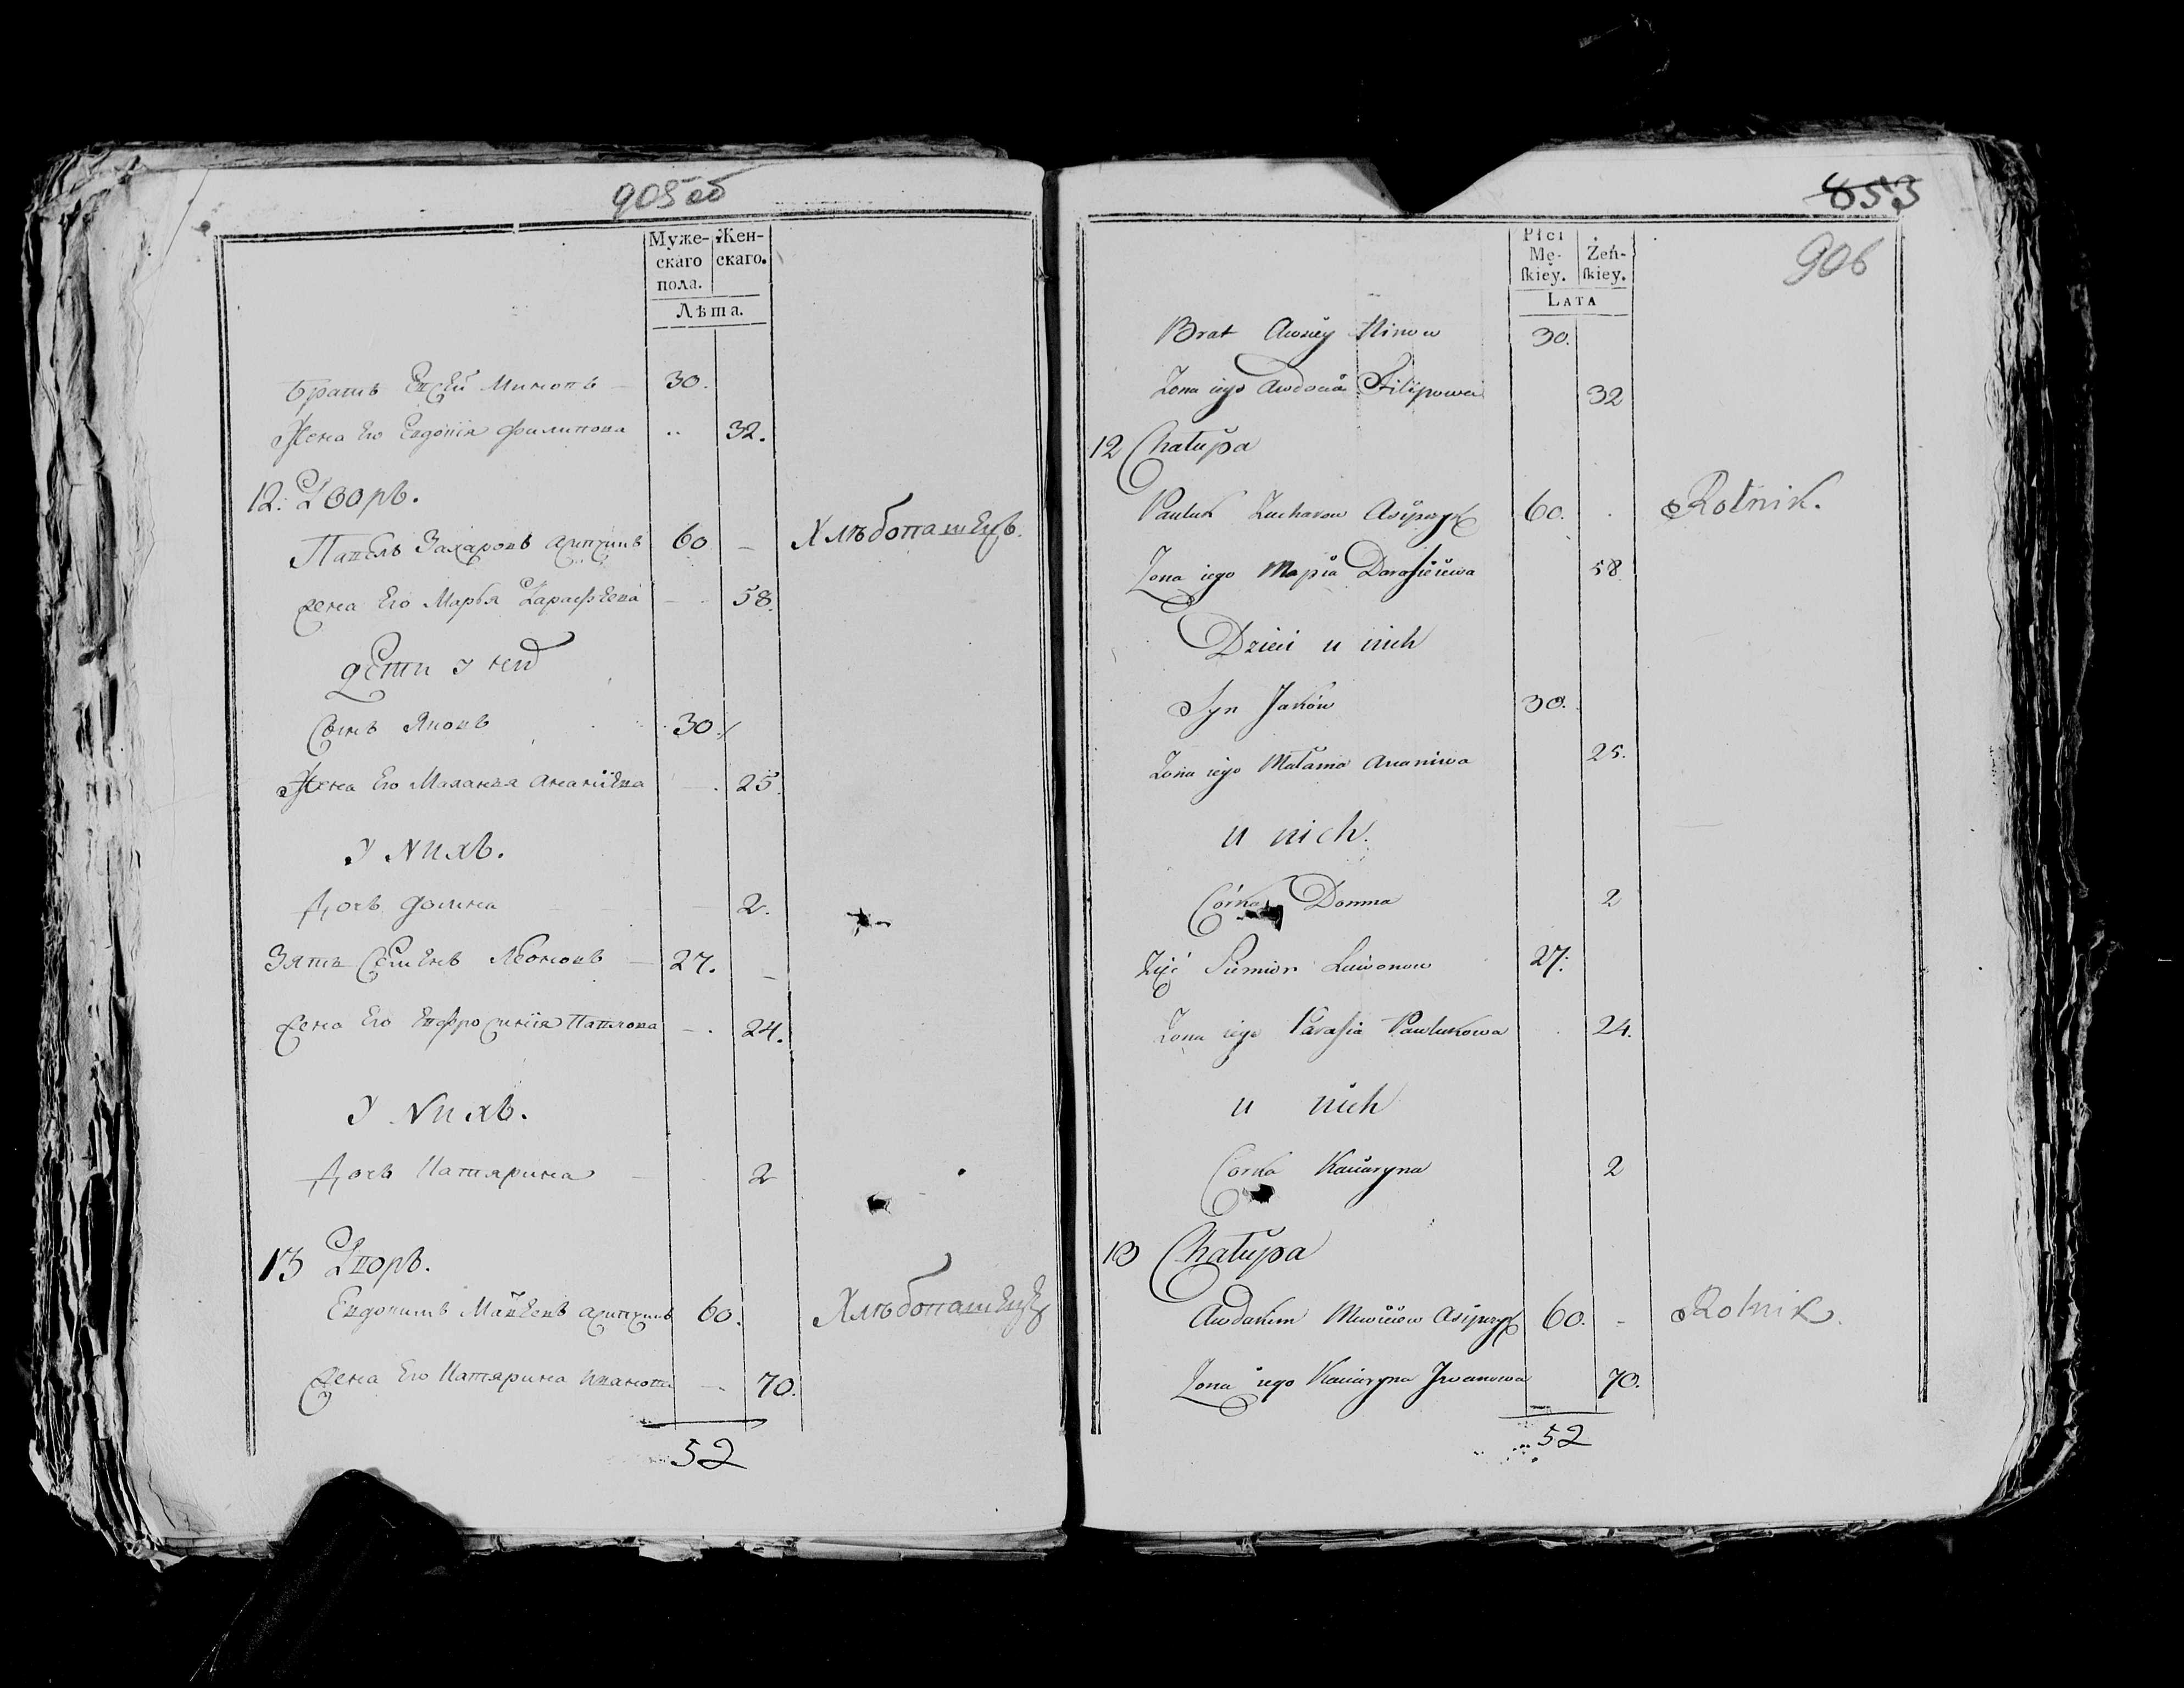 905 об
Муже-
скаго
пола.
Жен-
скаго.
Лѣта.
Братъ Евсей Миновъ 30.
Жена Его Евдокія Филипова 32.
12. Дворъ.
Павелъ Захаровъ 60 Хлѣбопашецъ.
Жена Его Марья Дарафѣева 58.
Дети у нихъ
Сынъ Яковъ 30
Жена Его Маланья Ананіева 25.
У Нихъ.
Дочь Домна 2.
Зять Семенъ Леоновъ 27.
Жена Его Евфросинія Павлова 24.
У Нихъ.
Дочь Катярина 2
13 Дворъ.
Евдокимъ 60. Хлѣбопашецъ
Жена Его Катярина Иванова 70.
52
853
906
Płci
Mę-
ſkiey.
Żeń-
ſkiey.
LATA
Brat Awsiey Minow 30.
Zona iego Awdocia Filipowa 32
12 Chałupa
Pauluk Zacharow 60. Rolnik.
Zona iego Maria Darafieiewa 58.
Dzieci u nich
Syn Jakow 30.
Zona iego Małania Ananiwa 25.
u nich.
Córka Domna 2
Zięć Siemion Leiwonow 27.
Zona iego Parasia Paulukowa 24.
u nich
Corka Kaciaryna 2
13 Chałupa
Awdakim 60. Rolnik.
Zona iego Kaciaryna Jwanowa 70.
52